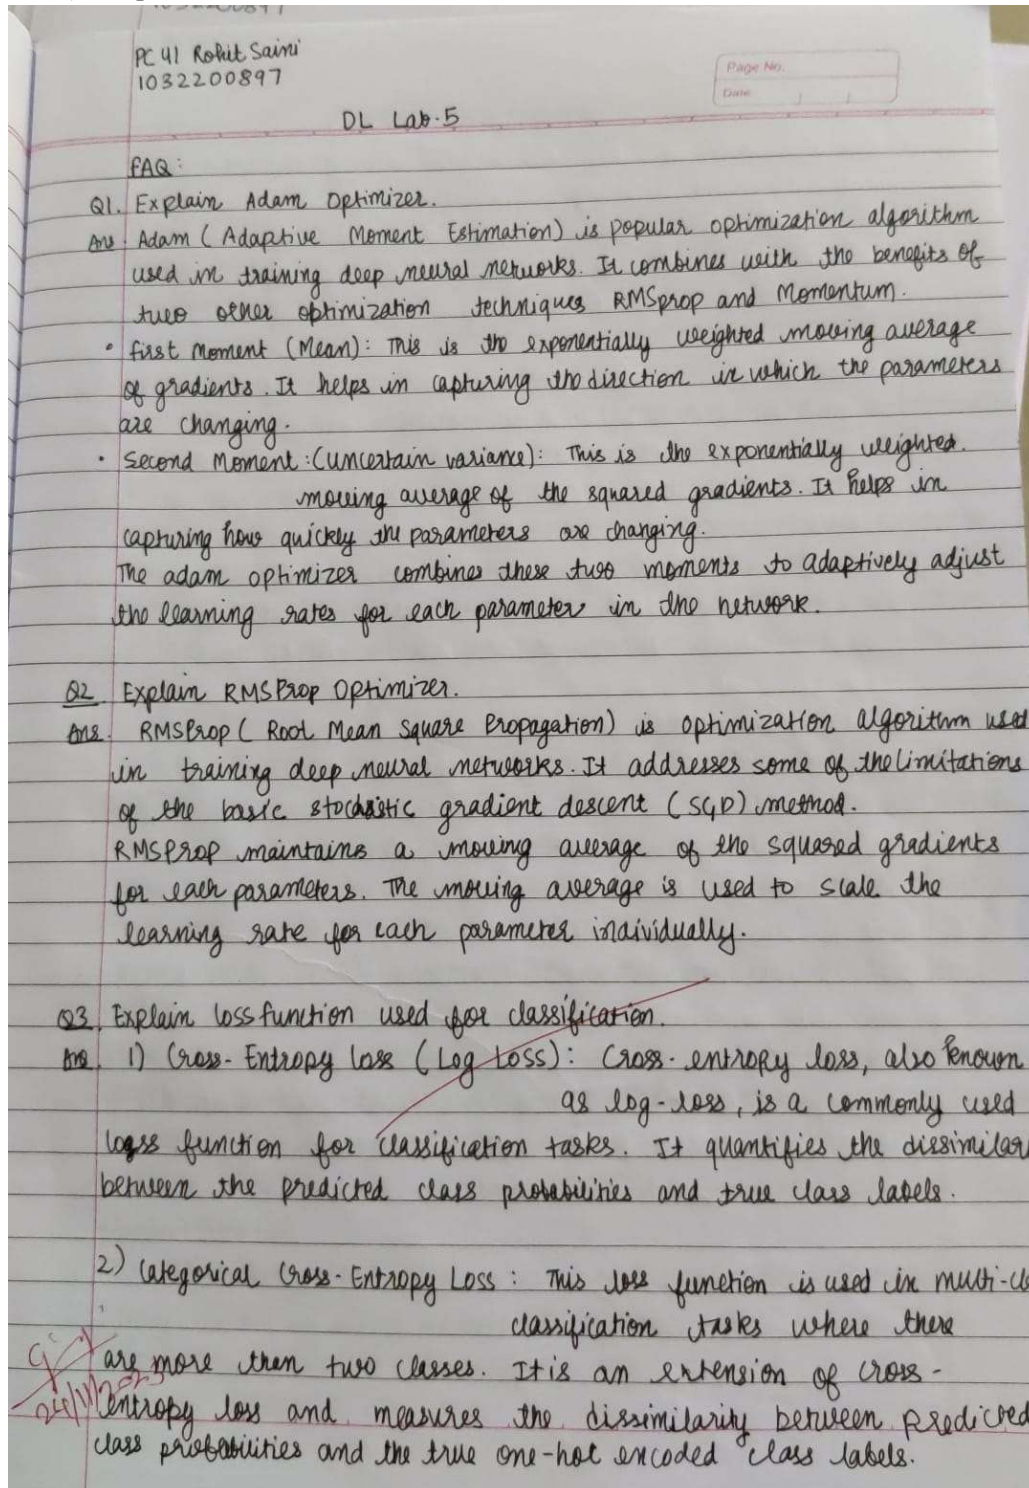 PC 41 Rohit Saini
1032200897
Page No.
Date
DL Lab-5
FAQ:
Q1. Explain Adam Optimizer.
Ans. Adam (Adaptive Moment Estimation) is popular optimization algorithm
used in training deep neural networks. It combines with the benefits of
two other optimization techniques RMSprop and Momentum.
• first Moment (Mean): This is the exponentially weighted moving average
of gradients. It helps in capturing the direction in which the parameters
are changing.
• Second Moment: (Uncertain variance): This is the exponentially weighted.
moving average of the squared gradients. It helps in
capturing how quickly the parameters are changing.
The adam optimizer combines these two moments to adaptively adjust
the learning rates for each parameter in the network.
Q2 Explain RMSProp Optimizer.
Ans. RMSProp (Root Mean Square Propagation) is optimization algorithm used
in training deep neural networks. It addresses some of the limitations
of the basic stochastic gradient descent (SGD) method.
RMSProp maintains a moving average of the squared gradients
for each parameters. The moving average is used to scale the
learning rate for each parameter individually.
Q3 Explain loss function used for classification.
Ans. 1) Cross-Entropy Loss (Log Loss): Cross-entropy loss, also known
as log-loss, is a commonly used
loss function for classification tasks. It quantifies the dissimilar
between the predicted class probabilities and true class labels.
2) Categorical Cross-Entropy Loss: This loss function is used in multi-cl
classification tasks where there
are more then two classes. It is an extension of cross-
entropy loss and measures the dissimilarity between predicted
class probabilities and the true one-hot encoded class labels.